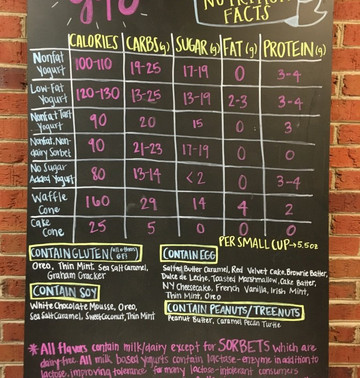 NUTRITION
FACTS
CALORIES CARBS(g) SUGAR(g) FAT(g) PROTEIN(g)
Nonfat Yogurt 100-110 19-25 17-19 0 3-4
Low-Fat Yogurt 120-130 13-25 13-19 2-3 3-4
Nonfat Tart Yogurt 90 20 15 0 3
Nonfat, Non-dairy Sorbet 90 21-23 17-19 0 0
No Sugar Added Yogurt 80 13-14 <2 0 3-4
Waffle Cone 160 29 14 4 2
Cake Cone 25 5 0 0 0
PER SMALL CUP→5.5oz
CONTAIN GLUTEN
Oreo, Thin Mint, Sea Salt Caramel,
Graham Cracker
CONTAIN SOY
White Chocolate Mousse, Oreo,
Sea Salt Caramel, Sweet Coconut, Thin Mint
CONTAIN EGG
Salted Butter Caramel, Red Velvet Cake, Brownie Batter,
Dulce de Leche, Toasted Marshmallow, Cake Batter,
NY Cheesecake, French Vanilla, Irish Mint,
Thin Mint, Oreo
CONTAIN PEANUTS/TREENUTS
Peanut Butter, Caramel Pecan Turtle
*All flavors contain milk/dairy except for SORBETS which are
dairy-free. All milk based yogurts contain lactose-enzyme in addition to
lactose, improving tolerance for many lactose-intolerant consumers